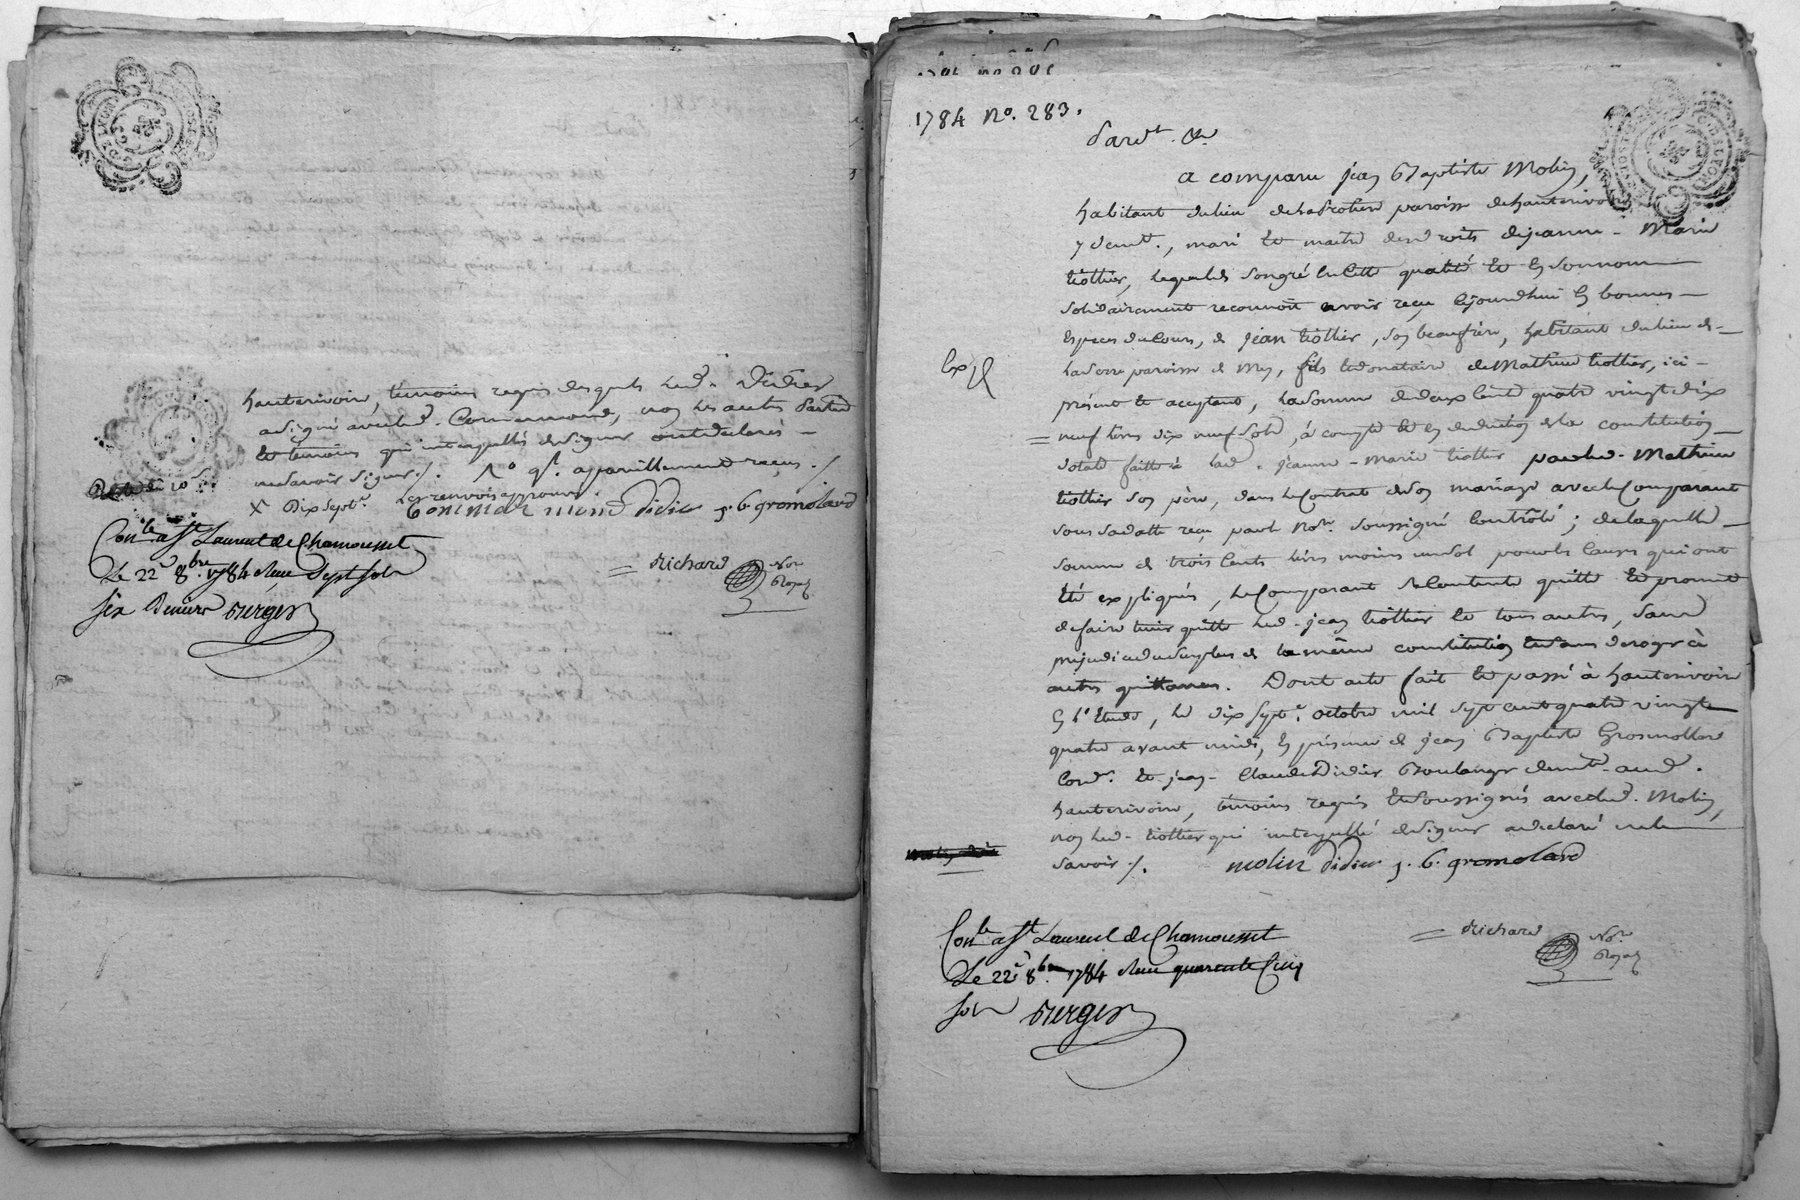 hauterivoire, témoins requis desquels led. Didier
a signé avec led. Commarmond, non les autres parties
et témoins qui interpellés de signer ont déclarés -
ne savoir signer /. appareillement reçus /
+ Dix sept.e les renvois approuvés.
Commarmond Didier j. b. gromolard
Con.le a St Laurent de Chamousset
Le 22.e 8.bre 1784 Reçu Sept sols
six Deniers Berger
= Richard Not.re Royal
1784 N.o 283.
Pard.t &c
a comparu jean Baptiste Molin,
habitant du lieu de paroisse de hauterivoire
y demt., mari et maitre des droits de jeanne - Marie
tiollier, lequel de son gré en cette qualité et en son nom
solidairement reconnoit avoir reçu cejourdhui en bonnes -
especes de cours, de jean tiollier, son beaufrère, habitant du lieu de -
laserre paroisse de Mey, fils et donataire de Mathieu tiollier, ici -
présent et acceptant, la somme de deux cent quatre vingt dix
Exp.é
= neuf livres dix neuf sols, à compte et en déduction de la constitution
dotale faitte à lad. jeanne - marie tiollier par led. Mathieu
tiollier son père, dans le contrat de son mariage avec le Comparant
sous sa datte reçu par le No.re soussigné Contrôlé ; de laquelle -
somme de trois cents livres moins un sol pour les causes qui ont
été expliqués, le Comparant se contente quitte et promet
de faire tenir quitte led. jean tiollier et tous autres, sans
préjudice du surplus de la même constitution et sans deroger à
autres quittances. Dont acte fait et passé à hauterivoire
en l'Etude, le dix sept.e octobre mil sept cent quatre vingt
quatre avant midi, en présence de jean Baptiste Gromollard
Cord.r et jean - Claude Didier Boulanger demt. aud.
hauterivoire, témoins requis et soussignés avec led. Molin,
non led. tiollier qui interpellé de signer a déclaré ne le
savoir /. molin Didier j. b. gromolard
Con.le a St Laurent de Chamousset
Le 22.e 8.bre 1784 Reçu quarente Cinq
sols Berger
= Richard Not.re Royal